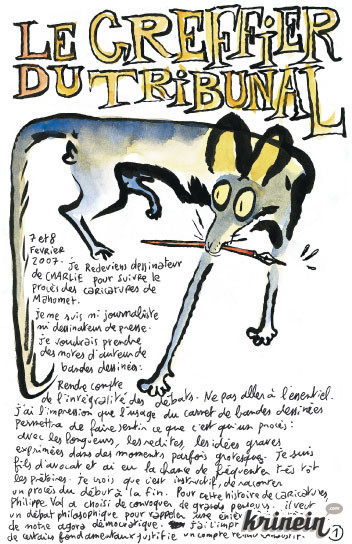 LE GREFFIER
DU TRIBUNAL
7 et 8
FEVRIER
2007. Je Redeviens dessinateur
de CHARLIE pour suivre le
procès des caricatures de
Mahomet.
Je ne suis ni journaliste
ni dessinateur de presse.
Je voudrais prendre
des notes d'auteur de
bandes dessinées :
Rendre compte
de l'intégralité des débats. Ne pas aller à l'essentiel.
J'ai l'impression que l'usage du carnet de bandes dessinées
permettra de faire sentir ce que c'est qu'un procès :
avec les longueurs, les redites, les idées graves
exprimées dans des moments parfois grotesques. Je suis
fils d'avocat et ai eu la chance de fréquenter très tôt
les prétoires. Je crois que c'est instructif, de raconter
un procès du début à la fin. Pour cette histoire de caricatures,
Philippe Val a choisi de convoquer de grands penseurs. il veut
un débat philosophique pour rappeler une
de notre agora démocratique. J'ai l'imp
de certains fondamentaux justifie un compte rendu
krinein
1